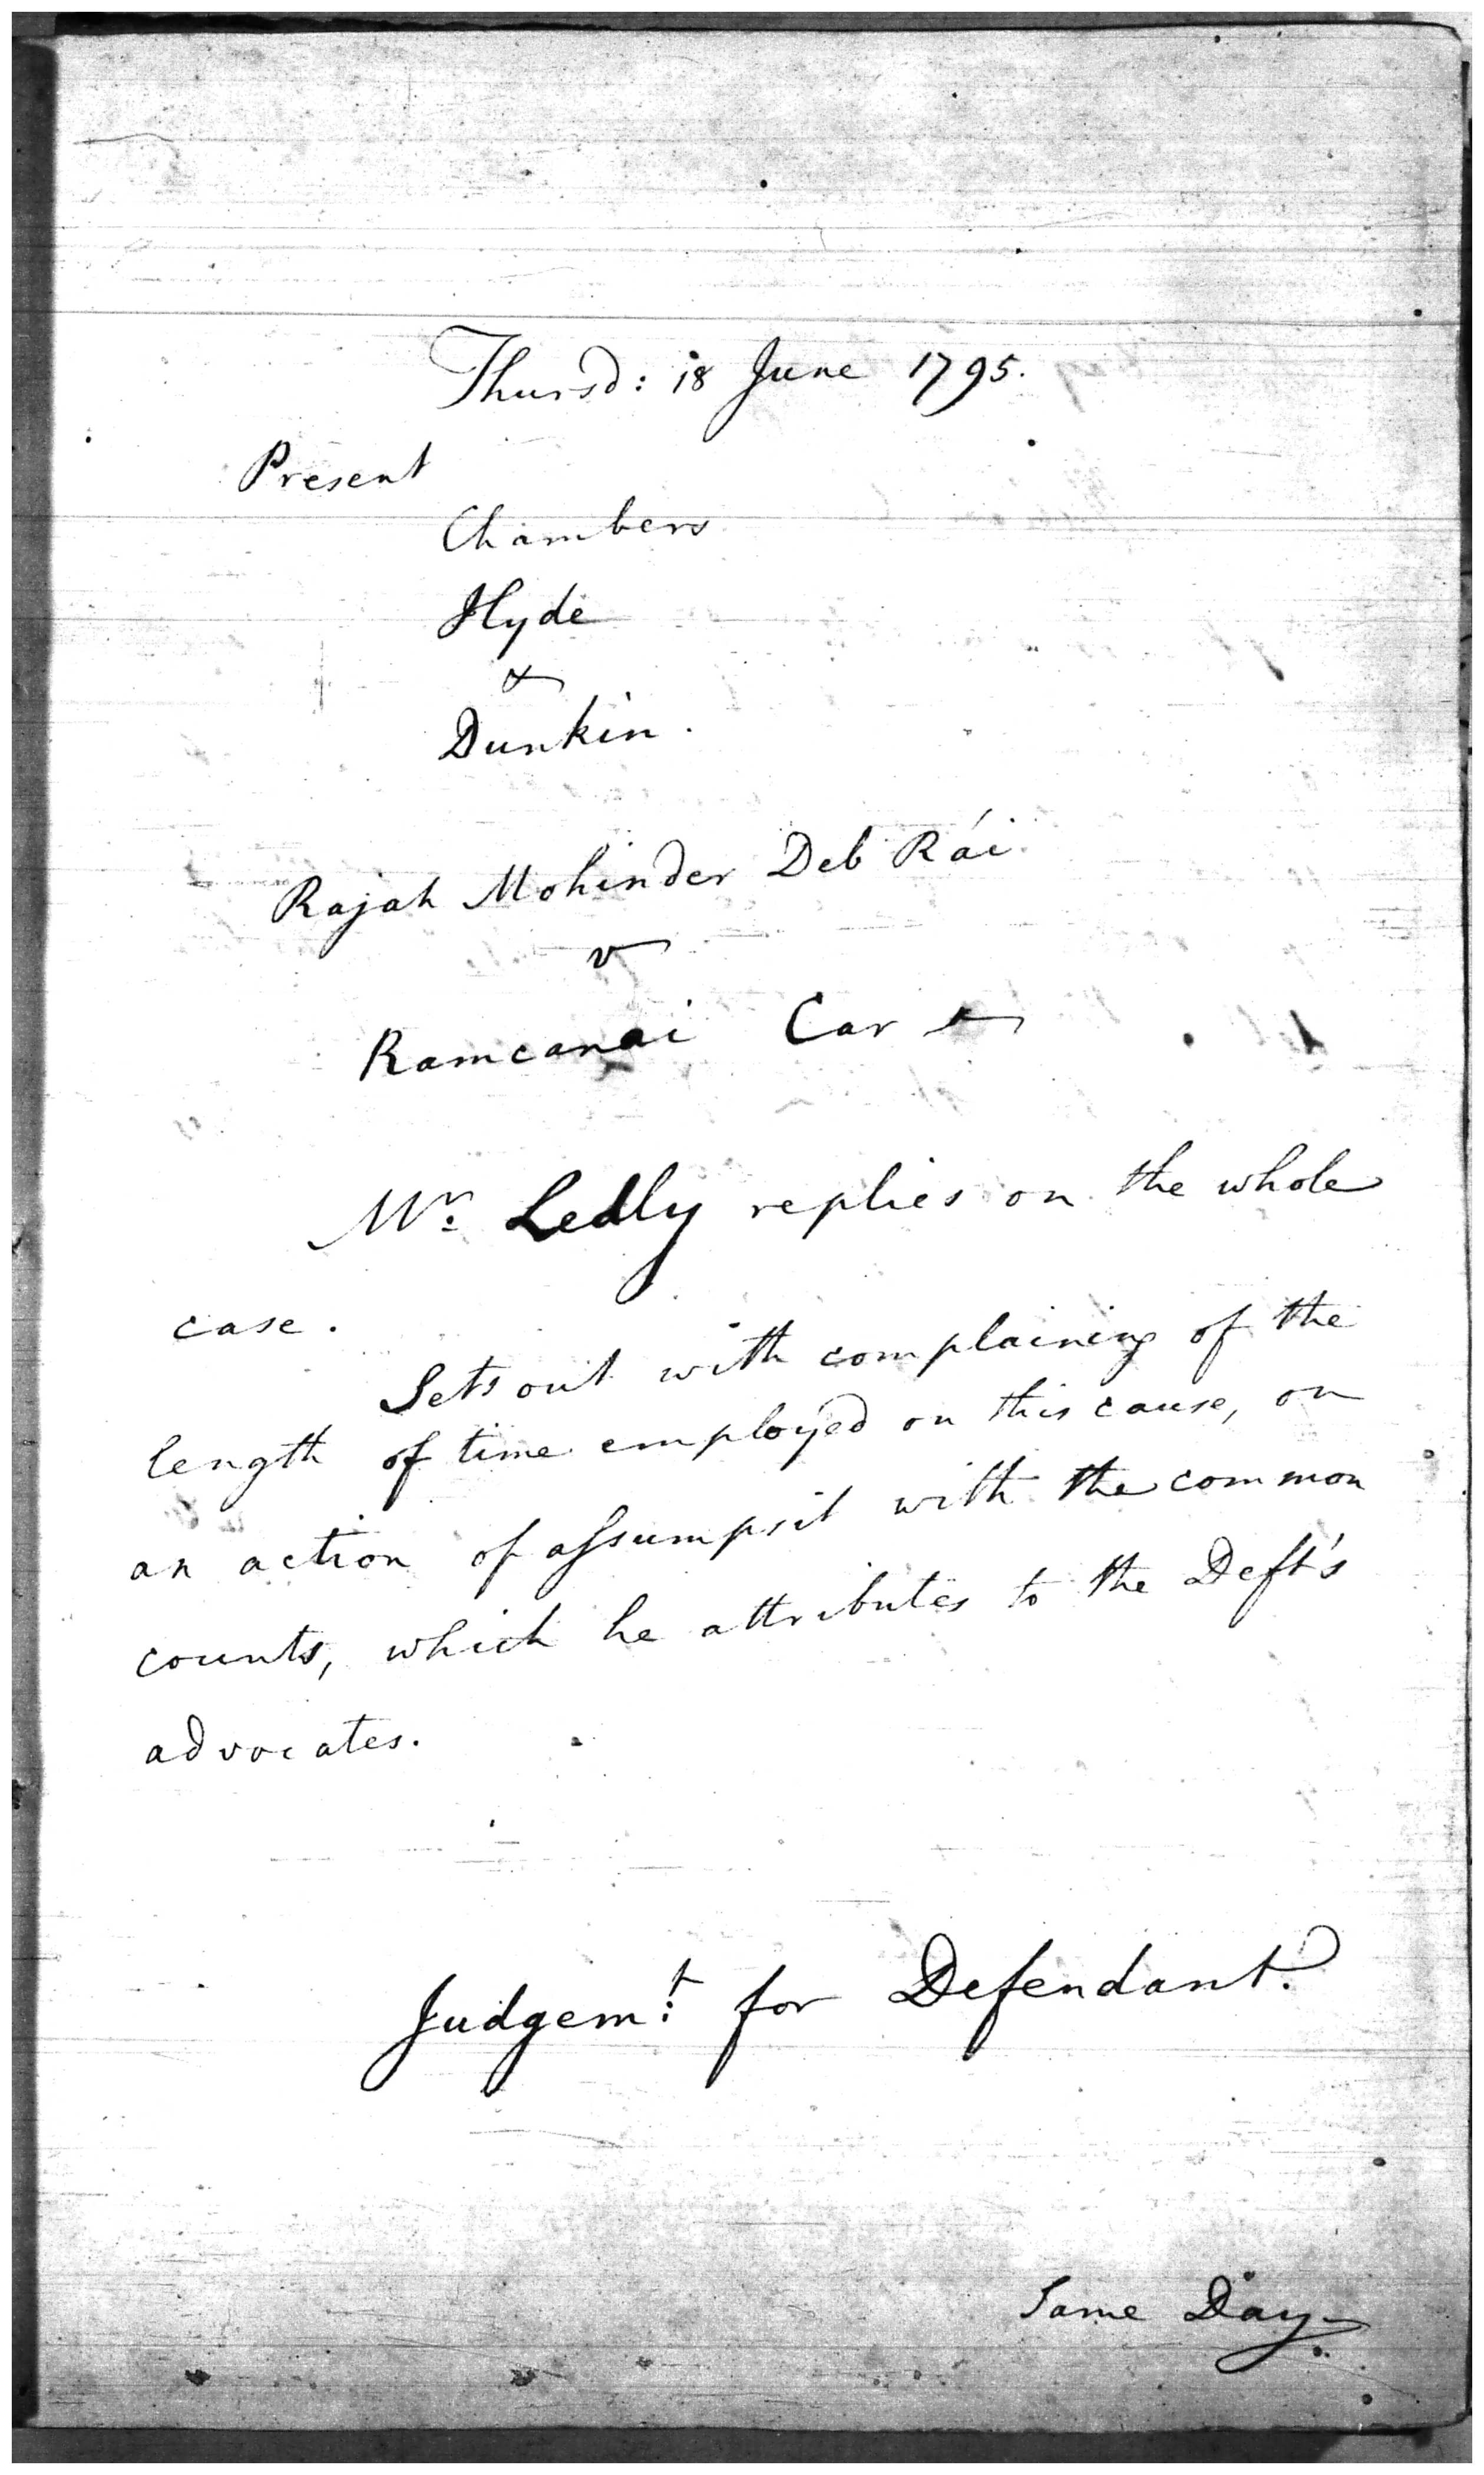 Thursd: 18 June 1795.
Present
Chambers
Hyde
&
Dunkin.
Rajah Mohinder Deb Rái
v
Ramcanai Car &
Mr. Ledly replies on the whole
case.
Sets out with complaining of the
length of time employed on this cause, on
an action of assumpsit with the common
counts, which he attributes to the Deft's
advocates.
Judgemt: for Defendant.
Same Day.